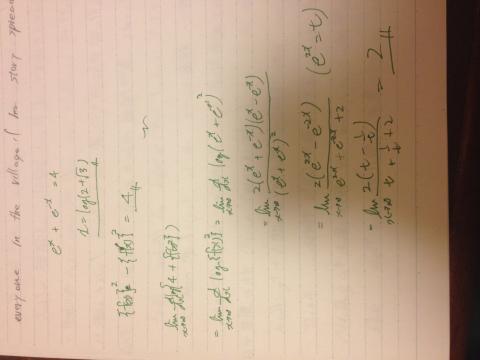 everyone in the village. I
e^x + e^-x = 4
x = log(2+√3)
{f(x)}^2 - {f'(x)}^2 = 4
= lim x→∞ d/dx log{f(x)}^2 = lim x→∞ d/dx log(e^x + e^-x)^2
= lim x→∞ 2(e^x + e^-x)(e^x - e^-x) / (e^x + e^-x)^2
= lim x→∞ 2(e^2x - e^-2x) / e^2x + e^-2x + 2 (e^2x = t)
= lim x→∞ 2(t - 1/t) / t + 1/t + 2 = 2